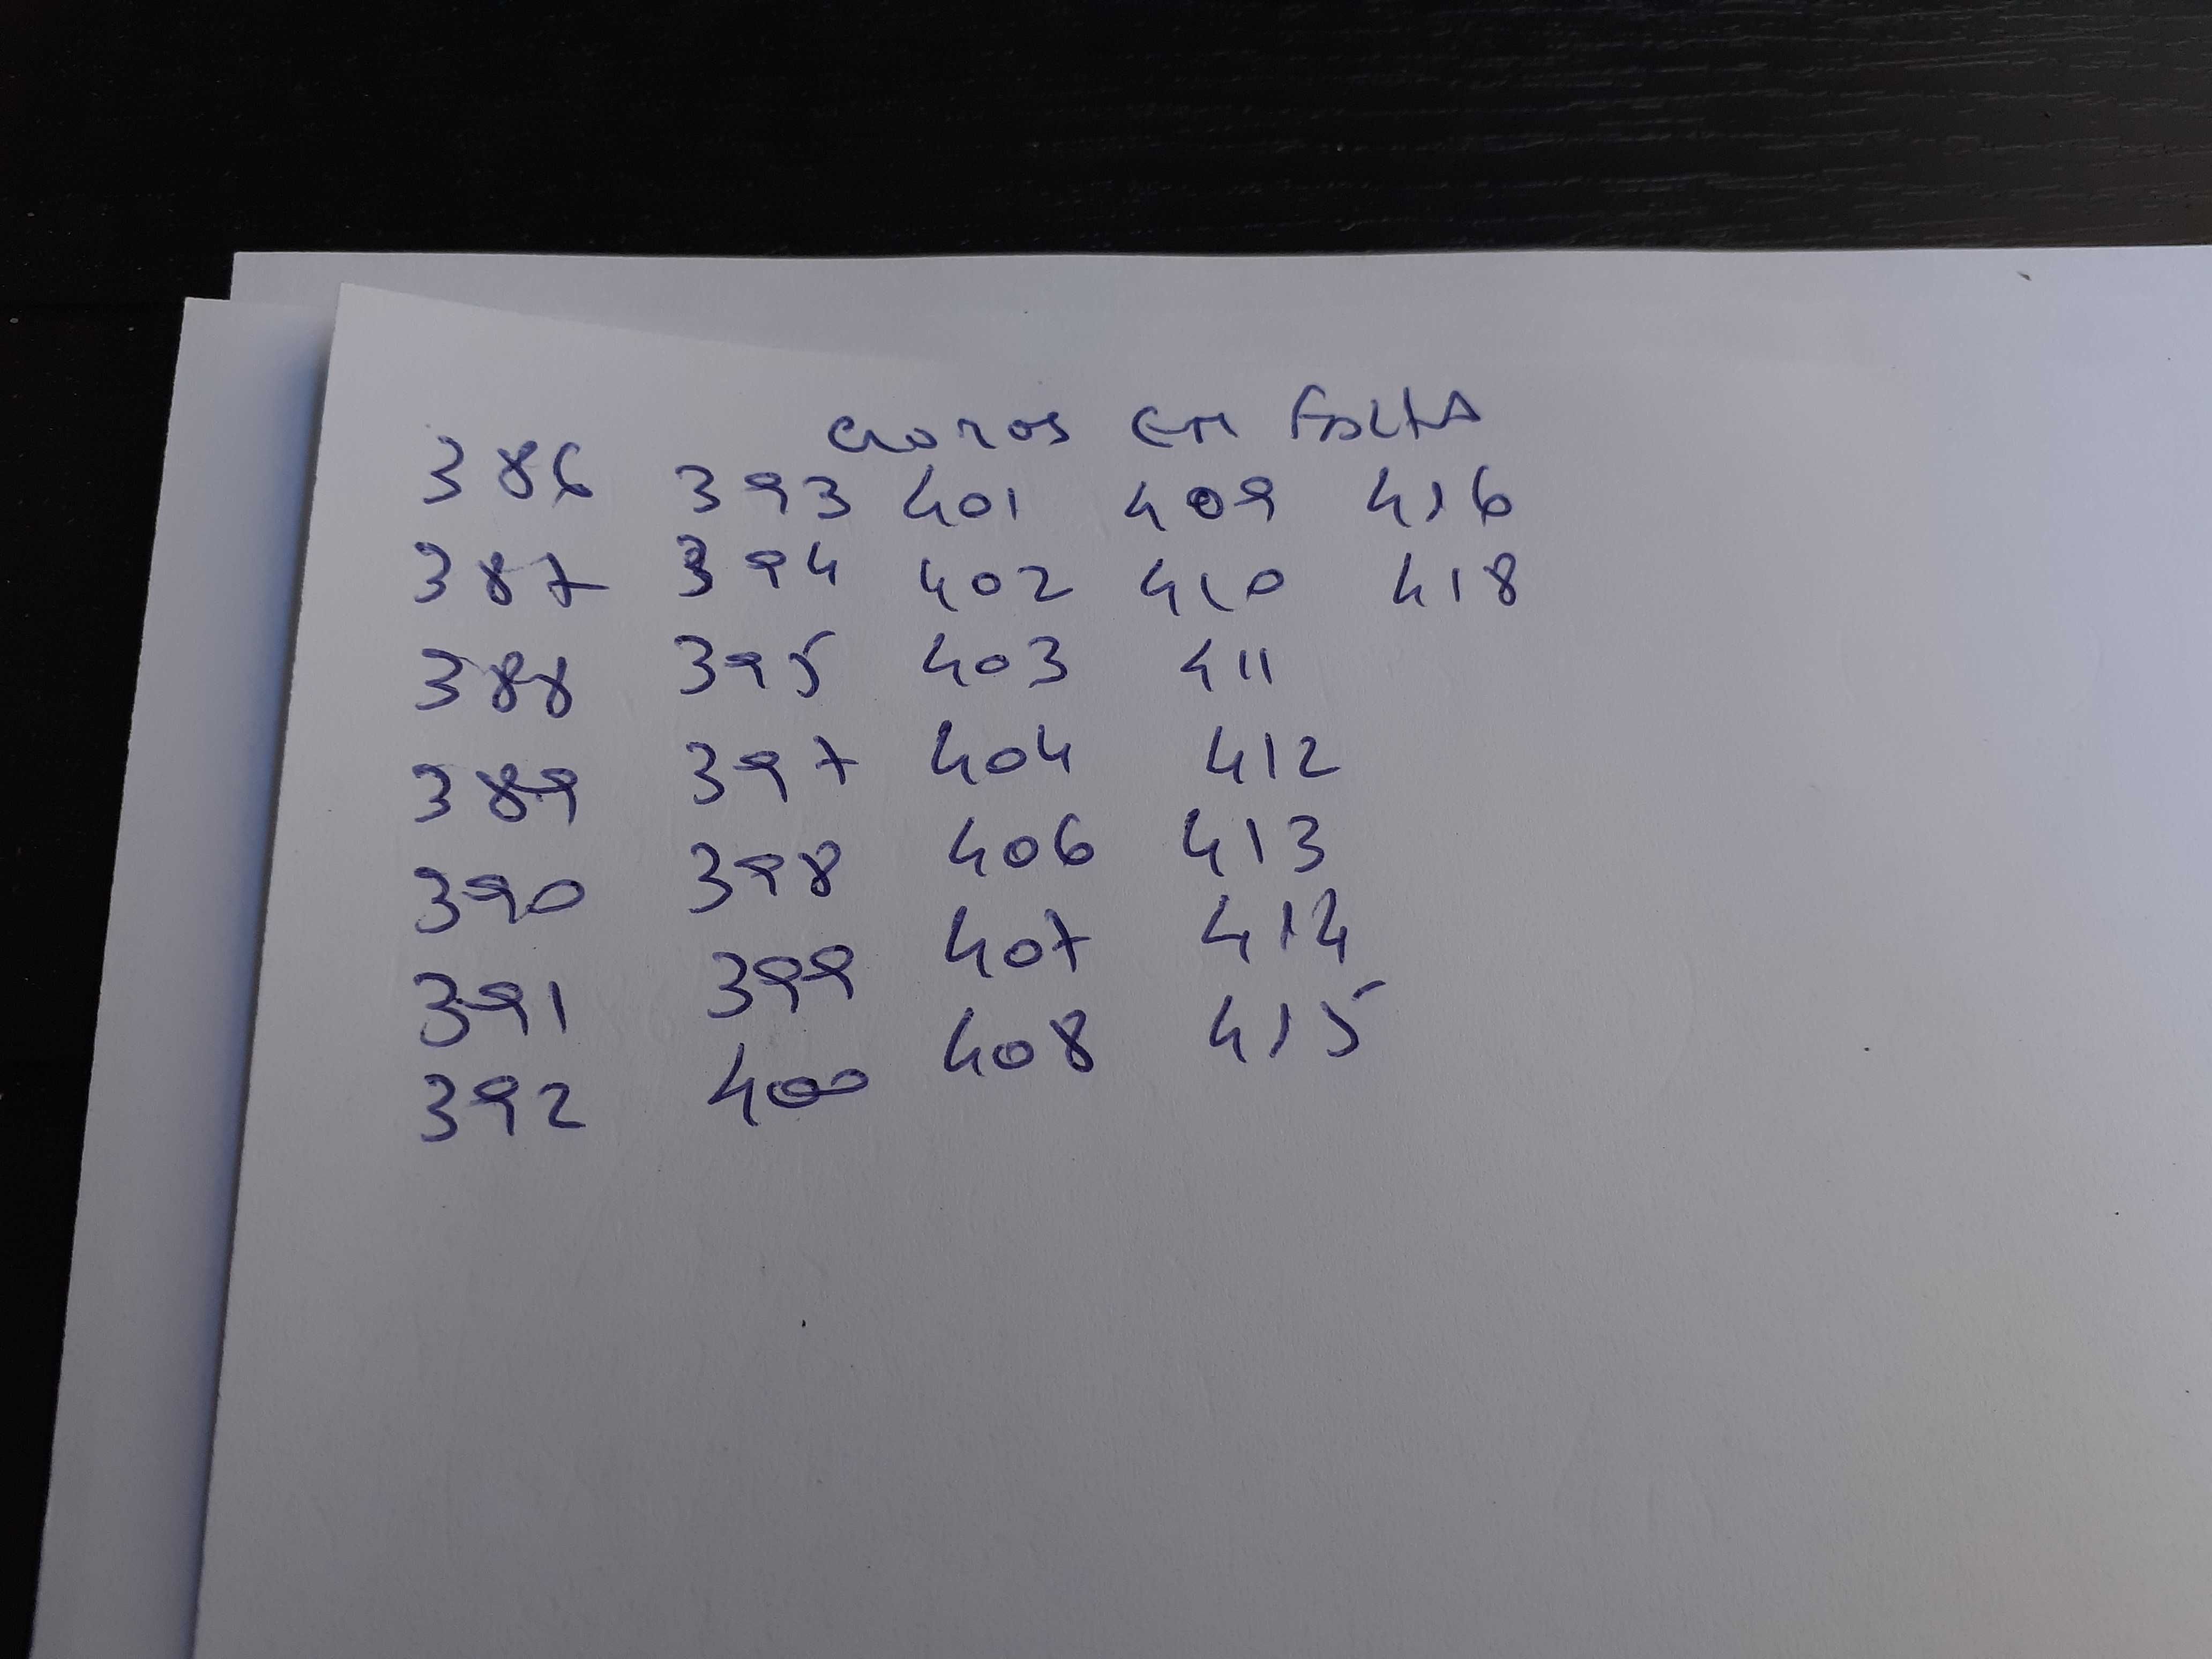 em falta
386 393 401 409 416
387 394 402 410 418
388 395 403 411
389 397 404 412
390 398 406 413
391 399 407 414
392 400 408 415